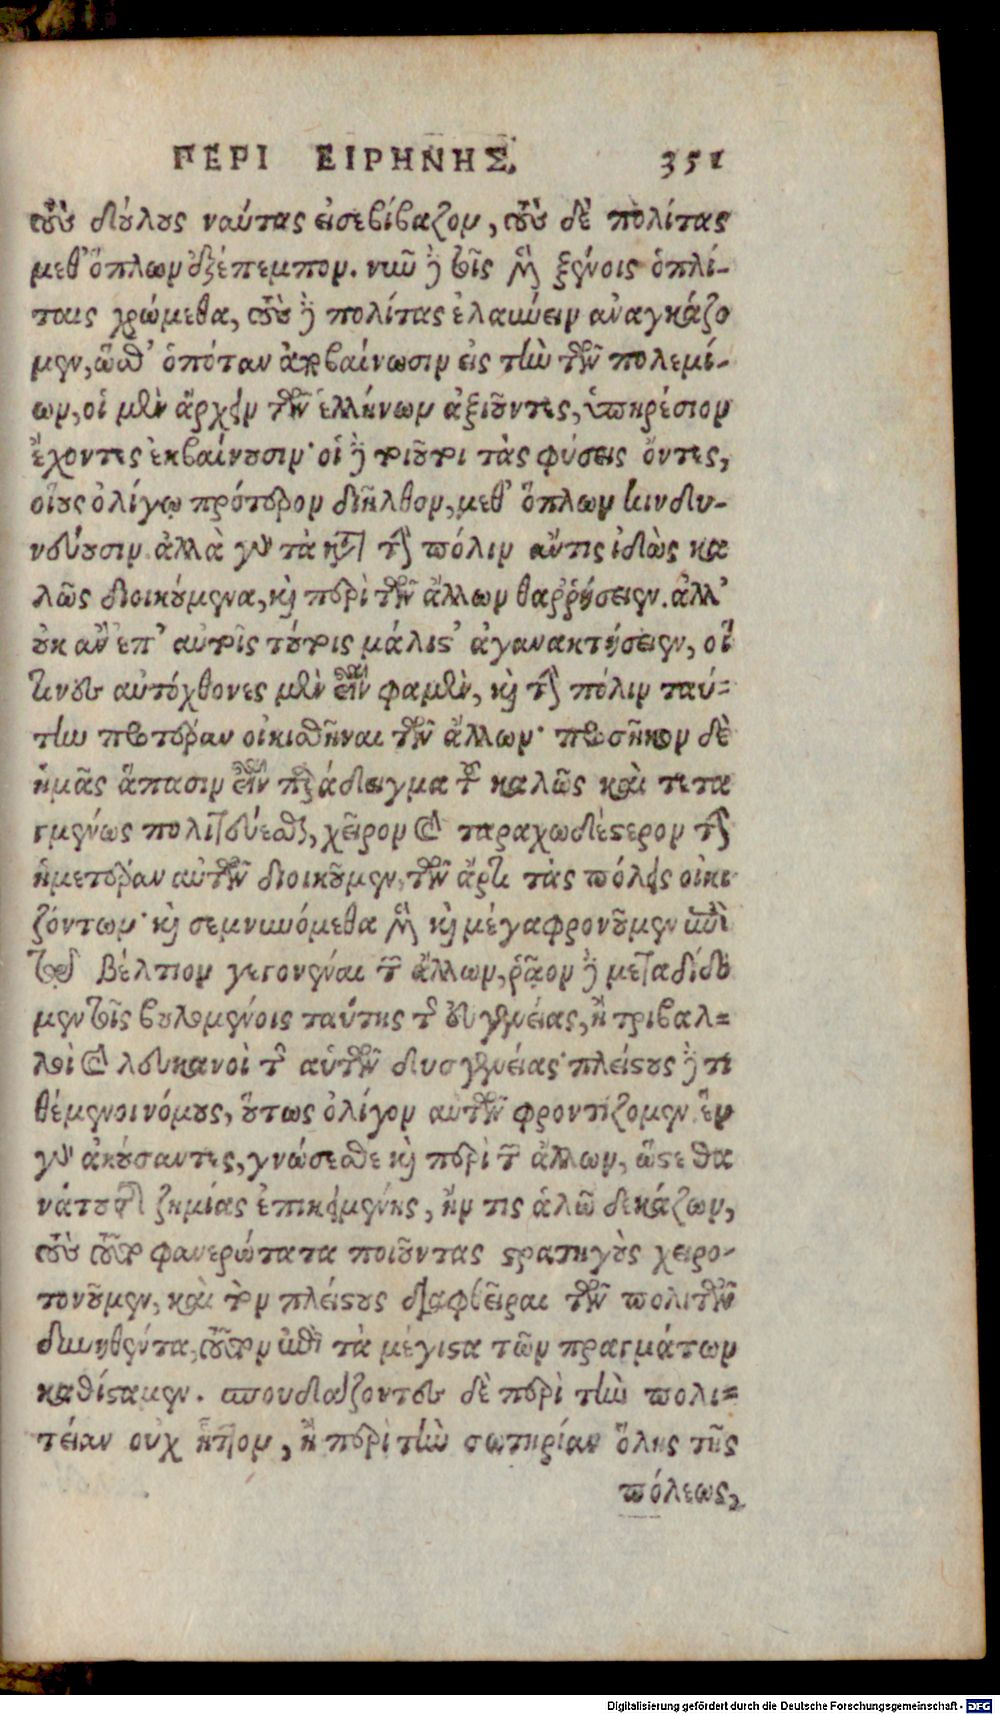 ΠΕΡΙ ΕΙΡΗΝΗΣ. 351
τοὺς δούλους ναύτας εἰσεβίβαζον, τοὺς δὲ πολίτας
μεθ' ὅπλων ἐξέπεμπον. νῦν δὲ τοῖς μὲν ξένοις ὁπλί-
ταις χρώμεθα, τοὺς δὲ πολίτας ἐλαύνειν ἀναγκάζο
μεν, ὥσθ' ὁπόταν ἀποβαίνωσιν εἰς τὴν τῶν πολεμί-
ων, οἱ μὲν ἄρχειν τῶν ἑλλήνων ἀξιοῦντες, ὑπηρέσιον
ἔχοντες ἐκβαίνουσιν· οἱ δὲ τοιοῦτοι τὰς φύσεις ὄντες,
οἵους ὀλίγῳ πρότερον διῆλθον, μεθ' ὅπλων κινδυ-
νεύουσιν. ἀλλὰ γὰρ τὰ κατὰ τὴν πόλιν ἄν τις ἰδὼν κα
λῶς διοικούμενα, καὶ περὶ τῶν ἄλλων θαῤῥήσειεν. ἀλλ'
οὐκ ἂν ἐπ' αὐτοῖς τούτοις μάλιστ' ἀγανακτήσειεν, οἵ
τινες αὐτόχθονες μὲν εἶναι φαμὲν, καὶ τὴν πόλιν ταύ-
την προτέραν οἰκισθῆναι τῶν ἄλλων· προσῆκον δὲ
ἡμᾶς ἅπασιν εἶναι παράδειγμα τοῦ καλῶς καὶ τετα
γμένως πολιτεύεσθαι, χεῖρον καὶ ταραχωδέστερον τὴν
ἡμετέραν αὐτῶν διοικοῦμεν, τῶν ἄρτι τὰς πόλεις οἰκι
ζόντων· καὶ σεμνυνόμεθα μὲν καὶ μέγα φρονοῦμεν ἐπὶ
τῷ βέλτιον γεγονέναι τῶν ἄλλων, ῥᾷον δὲ μεταδίδο
μεν τοῖς βουλομένοις ταύτης τῆς εὐγενείας, ἢ τριβαλ-
λοὶ καὶ λευκανοὶ τῆς αὑτῶν δυσγενείας· πλείστους δὲ τι
θέμενοι νόμους, οὕτως ὀλίγον αὐτῶν φροντίζομεν. ἓν
γὰρ ἀκούσαντες, γνώσεσθε καὶ περὶ τῶν ἄλλων, ὥστε θα
νάτου τῆς ζημίας ἐπικειμένης, ἤν τις ἁλῷ δεκάζων,
τοὺς τοῦτο φανερώτατα ποιοῦντας στρατηγοὺς χειρο-
τονοῦμεν, καὶ τὸν πλείστους διαφθεῖραι τῶν πολιτῶν
δυνηθέντα, τοῦτον ἐπὶ τὰ μέγιστα τῶν πραγμάτων
καθίσταμεν. σπουδάζοντες δὲ περὶ τὴν πολι-
τείαν οὐχ ἧττον, ἢ περὶ τὴν σωτηρίαν ὅλης τῆς
πόλεως,
Digitalisierung gefördert durch die Deutsche Forschungsgemeinschaft - DFG